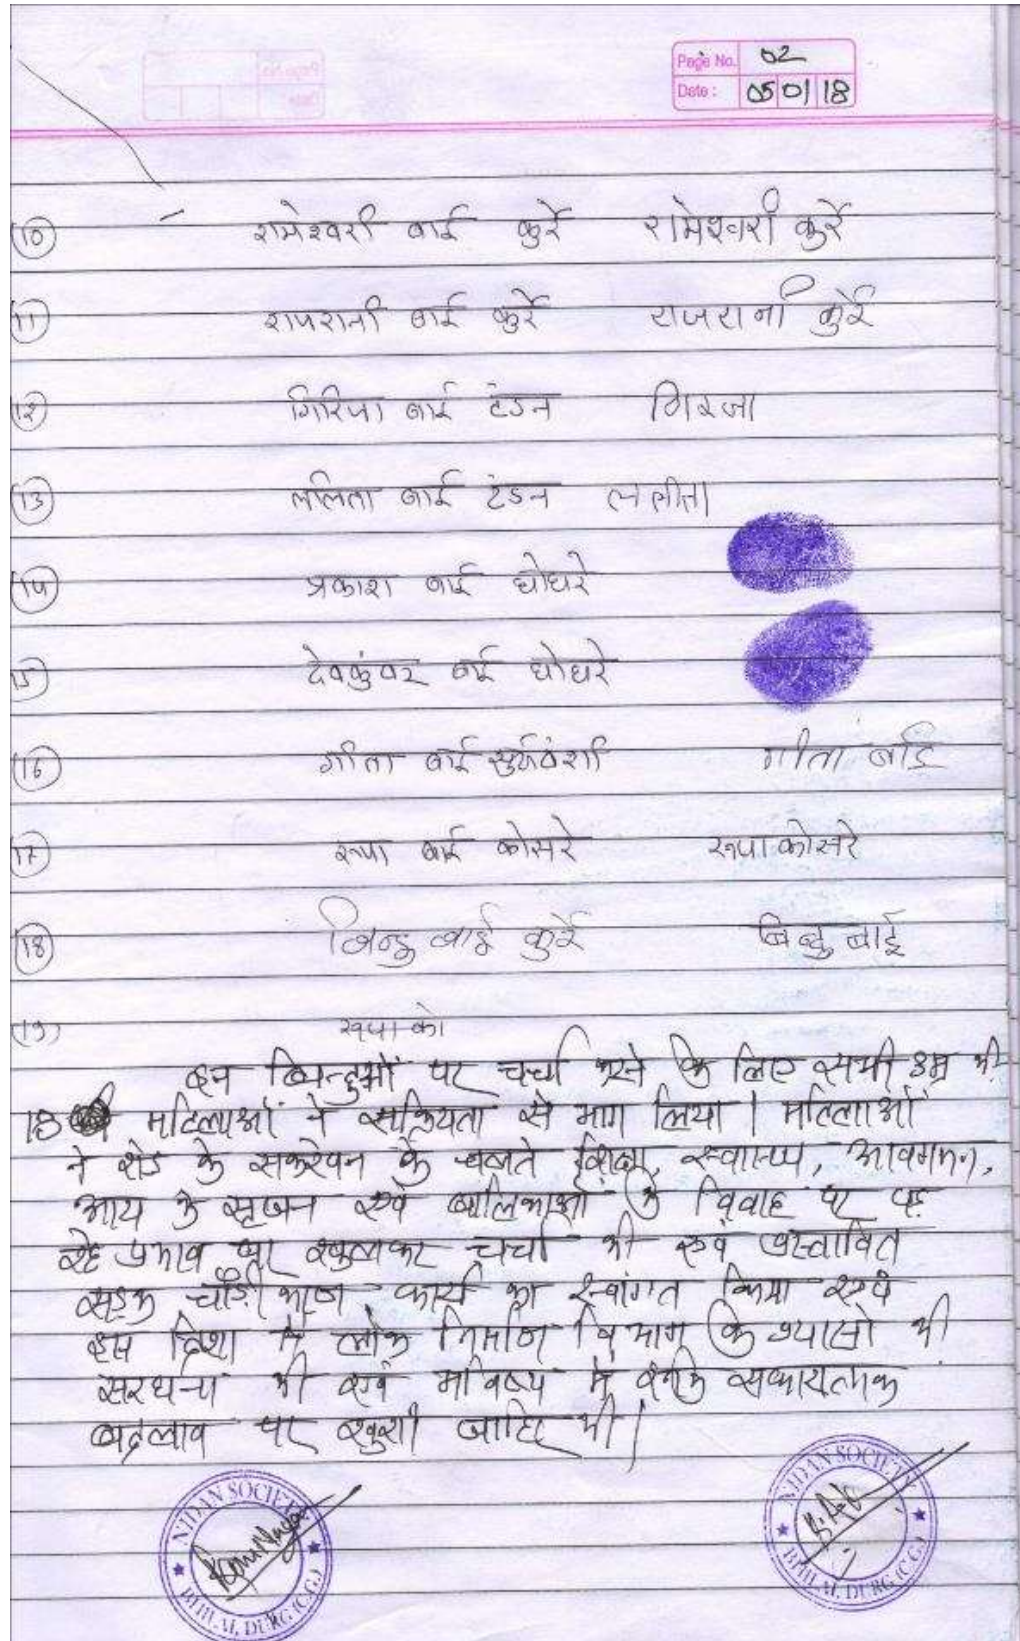 Page No. 02
Date : 05 01 18
10 रामेश्वरी बाई कुर्रे रामेश्वरी कुर्रे
11 राजरानी बाई कुर्रे राजरानी कुर्रे
12 गिरिजा बाई टंडन गिरजा
13 ललिता बाई टंडन ललीता
14 प्रकाश बाई घोघरे
15 देवकुंवर बाई घोघरे
16 गीता बाई सुर्यवंशी गीता बाई
17 रूपा बाई कोसरे रूपा कोसरे
18 बिन्दु बाई कुर्रे बिन्दु बाई
19 रूपा को
इन बिन्दुओं पर चर्चा करने के लिए सभी उम्र की
18 महिलाओं ने सक्रियता से भाग लिया। महिलाओं
ने रोड के सकरेपन के चलते शिक्षा, स्वास्थ्य, आवागमन,
आय के सृजन एवं बालिकाओं के विवाह पर पड़
रहे प्रभाव पर खुलकर चर्चा की एवं प्रस्तावित
सड़क चौड़ी कार्य का स्वागत किया एवं
इस दिशा में लोक निर्माण विभाग के प्यासो की
सरधना की एवं भविष्य में इनके सकारात्मक
बदलाव पर खुशी जाहिर की।
NIDAN SOCIETY
BHILAI, DURG (C.G.)
NIDAN SOCIETY
BHILAI, DURG (C.G.)